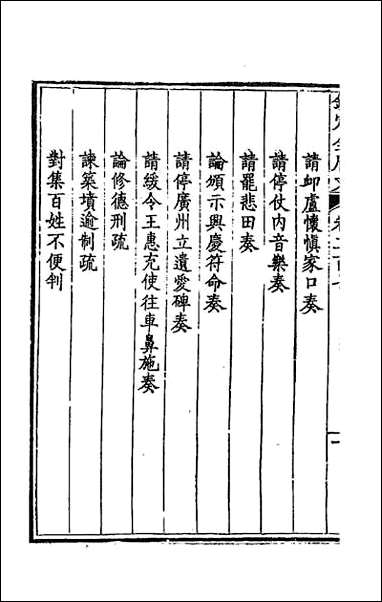 請卹盧懷慎家口奏
請停仗內音樂奏
請罷悲田奏
論頒示興慶符命奏
請停廣州立遺愛碑奏
請緩令王惠充使往車鼻施奏
論修德刑疏
諫築墳逾制疏
對集百姓不便判